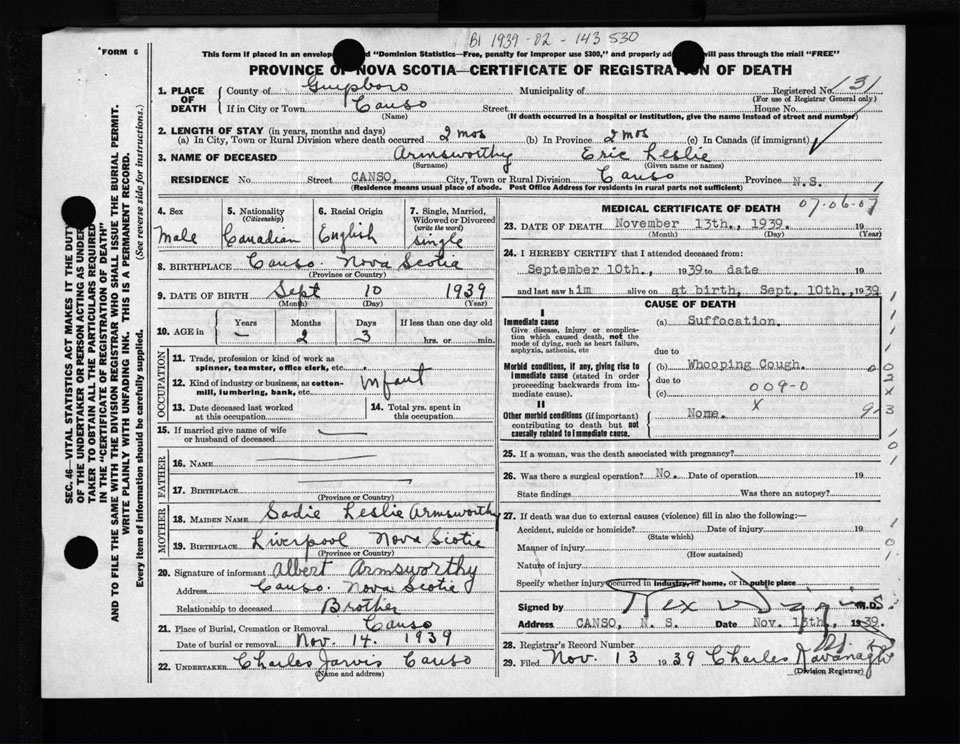 BI 1939-02-143530
FORM 6
This form if placed in an envelop and "Dominion Statistics—Free, penalty for improper use $300," and properly ad will pass through the mail "FREE"
PROVINCE OF NOVA SCOTIA—CERTIFICATE OF REGISTRATION OF DEATH
SEC. 46—VITAL STATISTICS ACT MAKES IT THE DUTY
OF THE UNDERTAKER OR PERSON ACTING AS UNDER
TAKER TO OBTAIN ALL THE PARTICULARS REQUIRED
IN THE "CERTIFICATE OF REGISTRATION OF DEATH"
AND TO FILE THE SAME WITH THE DIVISION REGISTRAR WHO SHALL ISSUE THE BURIAL PERMIT.
WRITE PLAINLY WITH UNFADING INK. THIS IS A PERMANENT RECORD.
Every item of information should be carefully supplied. (See reverse side for instructions.)
1. PLACE OF DEATH County of Guysboro Municipality of Registered No. 131
(For use of Registrar General only)
If in City or Town Canso Street House No.
(Name) (If death occurred in a hospital or institution, give the name instead of street and number)
2. LENGTH OF STAY (in years, months and days)
(a) In City, Town or Rural Division where death occurred 2 mos (b) In Province 2 mos (c) In Canada (if immigrant)
3. NAME OF DECEASED Armsworthy Eric Leslie
(Surname) (Given name or names)
RESIDENCE No. Street CANSO, City, Town or Rural Division Canso Province N.S. 1
(Residence means usual place of abode. Post Office Address for residents in rural parts not sufficient)
4. Sex Male
5. Nationality (Citizenship) Canadian
6. Racial Origin English
7. Single, Married, Widowed or Divorced (write the word) single
8. BIRTHPLACE Canso. Nova Scotia
(Province or Country)
9. DATE OF BIRTH Sept 10 1939
(Month) (Day) (Year)
10. AGE in Years Months Days If less than one day old
— 2 3 hrs. or min.
OCCUPATION
11. Trade, profession or kind of work as
spinner, teamster, office clerk, etc.
12. Kind of industry or business, as cotton-
mill, lumbering, bank, etc. Infant
13. Date deceased last worked
at this occupation
14. Total yrs. spent in
this occupation
15. If married give name of wife
or husband of deceased —
FATHER
16. NAME —
17. BIRTHPLACE
(Province or Country)
MOTHER
18. MAIDEN NAME Sadie Leslie Armsworthy
19. BIRTHPLACE Liverpool Nova Scotia
(Province or Country)
20. Signature of informant Albert Armsworthy
Address Canso. Nova Scotia
Relationship to deceased Brother
21. Place of Burial, Cremation or Removal Canso
Date of burial or removal Nov. 14. 1939
22. UNDERTAKER Charles Jarvis Canso
(Name and address)
MEDICAL CERTIFICATE OF DEATH 07-06-07
23. DATE OF DEATH November 13th., 1939. 19
(Month) (Day) (Year)
24. I HEREBY CERTIFY that I attended deceased from:
September 10th., 1939 to date 19
and last saw him alive on at birth, Sept. 10th., 1939
CAUSE OF DEATH
I
Immediate cause
Give disease, injury or complica-
tion which caused death, not the
mode of dying, such as heart failure,
asphyxia, asthenia, etc
(a) Suffocation.
due to
Morbid conditions, if any, giving rise to
immediate cause (stated in order
proceeding backwards from im-
mediate cause).
(b) Whooping Cough.
due to 009-0
(c)
II
Other morbid conditions (if important)
contributing to death but not
causally related to immediate cause.
x
None.
25. If a woman, was the death associated with pregnancy?
26. Was there a surgical operation? No. Date of operation 19
State findings Was there an autopsy?
27. If death was due to external causes (violence) fill in also the following:—
Accident, suicide or homicide? Date of injury 19
(State which)
Manner of injury
(How sustained)
Nature of injury
Specify whether injury occurred in industry, in home, or in public place
Signed by M.D.
Address CANSO, N. S. Date Nov. 13th., 1939.
28. Registrar's Record Number
29. Filed Nov. 13 1939 Charles Kavanagh
(Division Registrar)